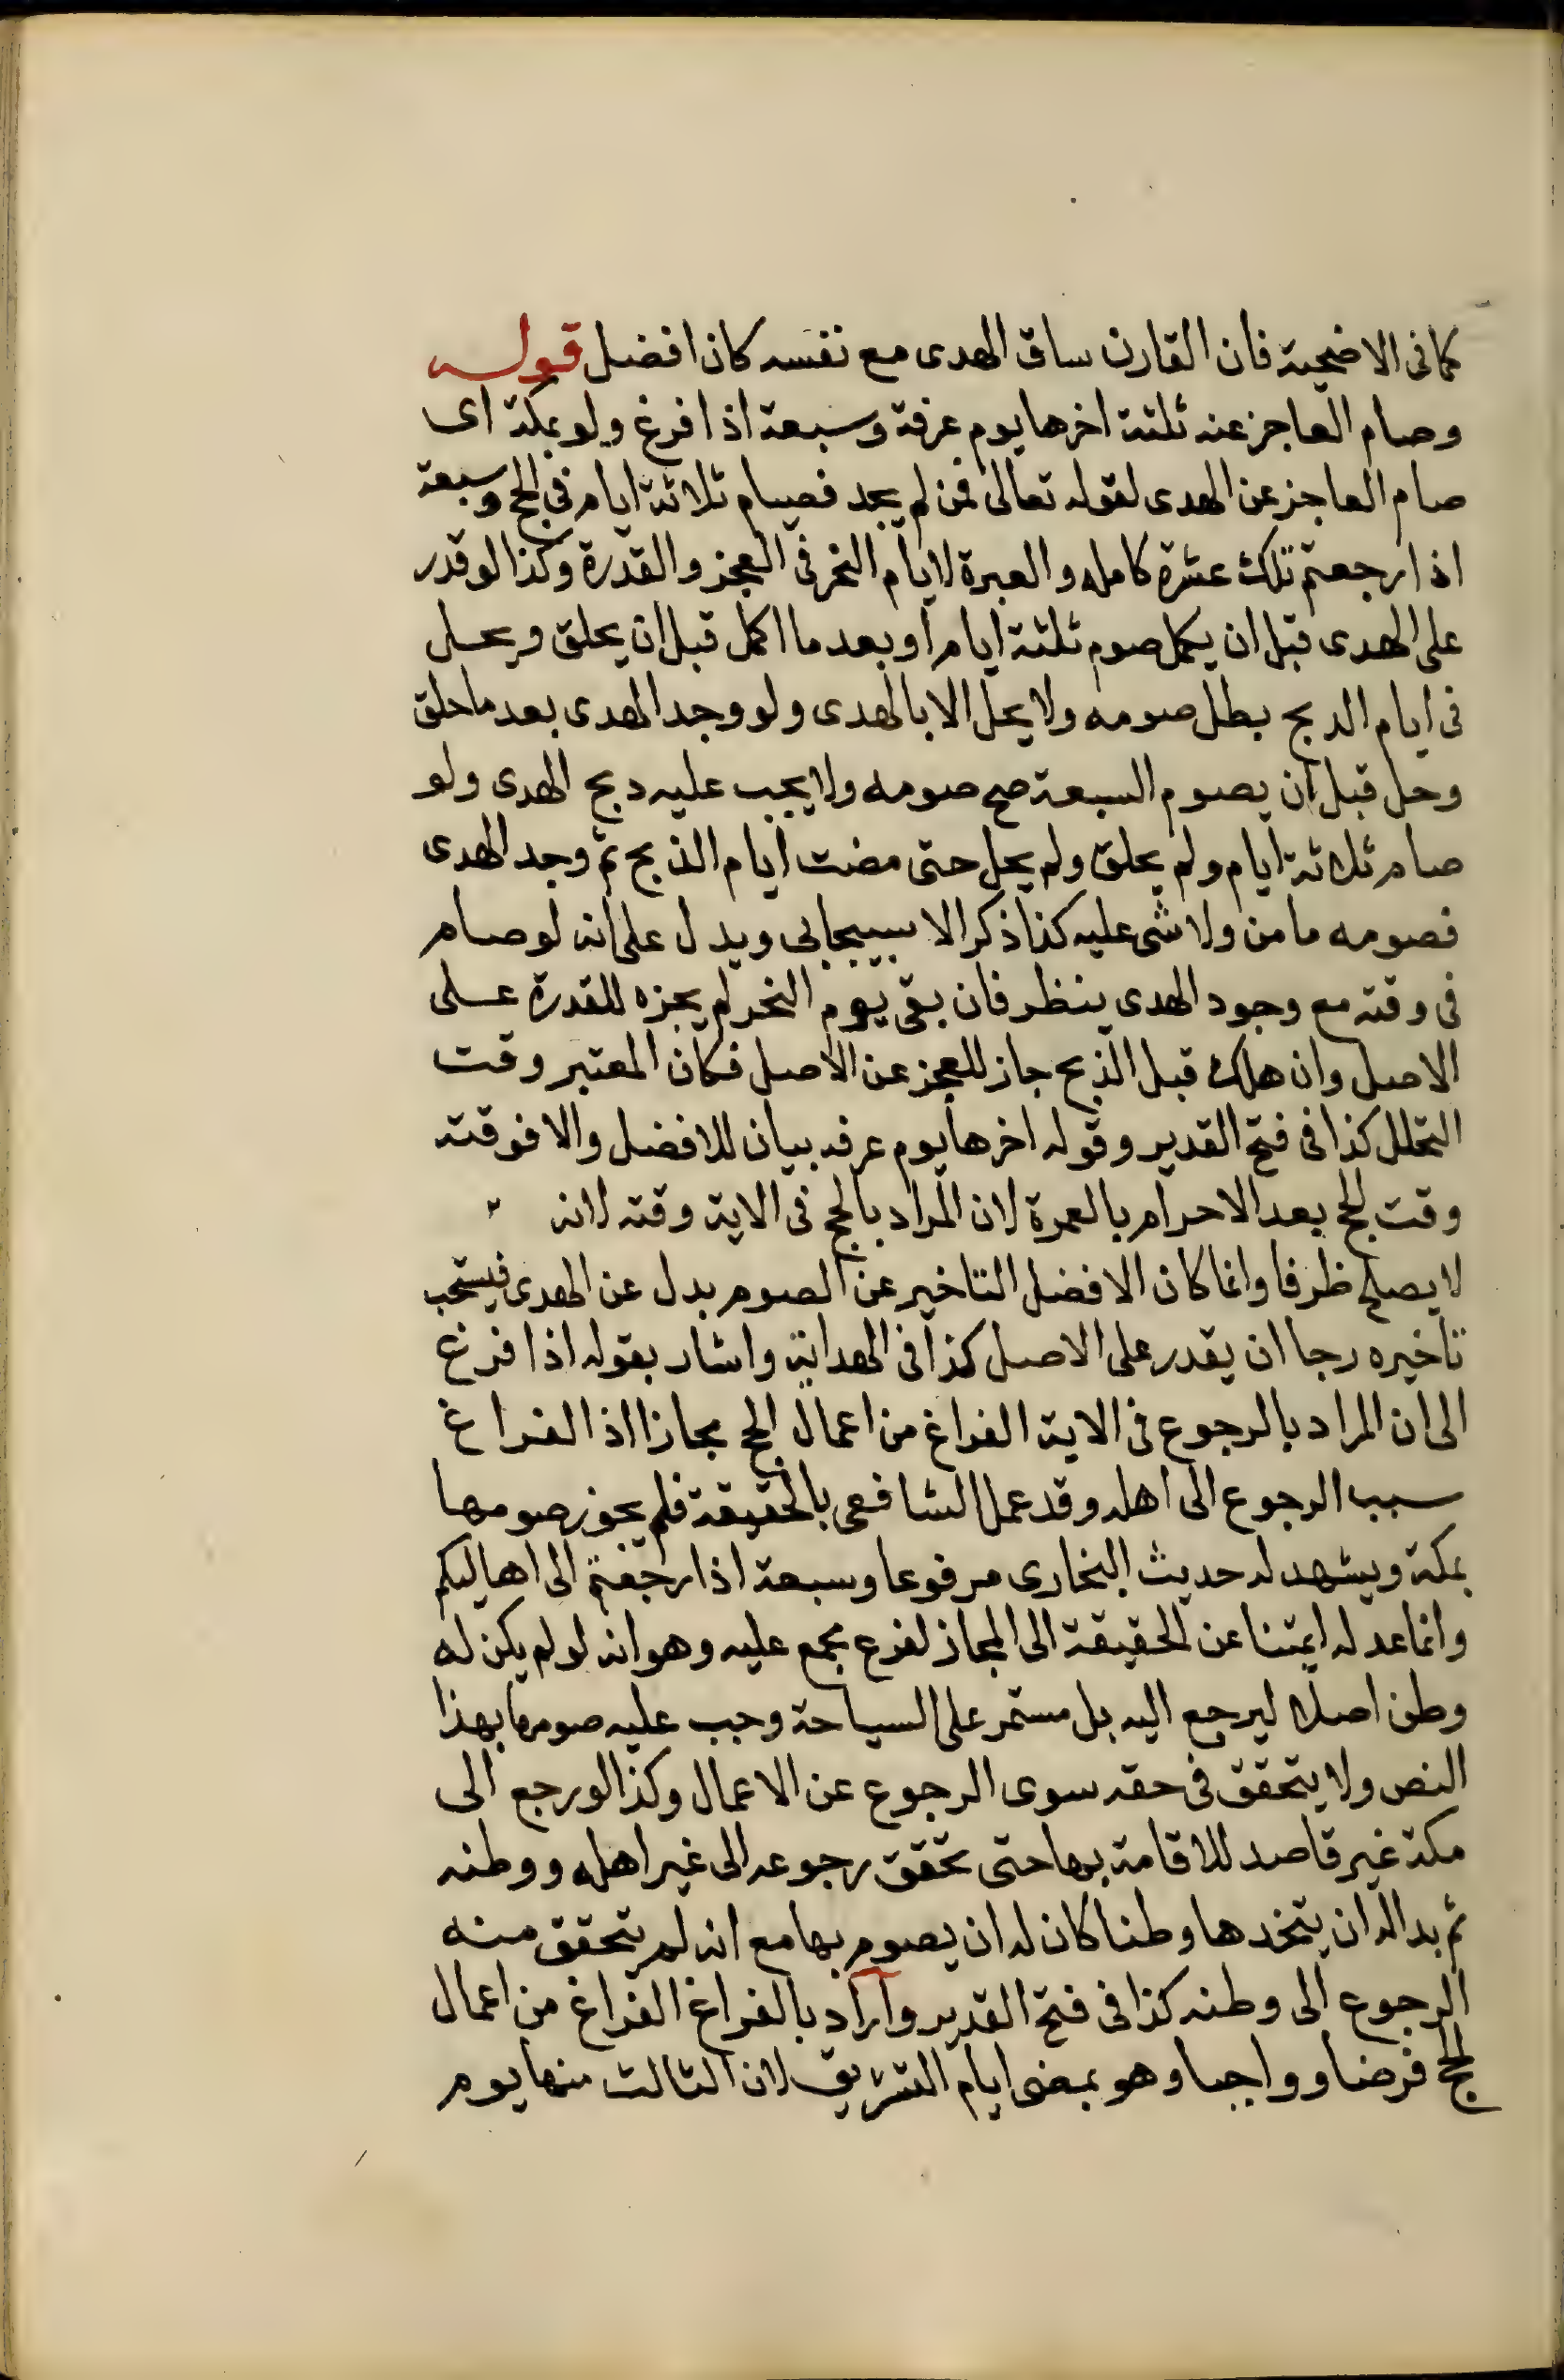 كما فى الاضحية فان القارن ساق الهدى مع نفسه كان افضل قوله
وصام العاجز عنه ثلثة اخرها يوم عرفة وسبعة اذا فرغ ولو بمكة اى
صام العاجز عن الهدى لقوله تعالى فمن لم يجد فصيام ثلاثة ايام فى الحج وسبعة
اذا رجعتم تلك عشرة كامله والعبرة لايام النحر فى العجز والقدرة وكذا لو قدر
على الهدى قبل ان يكمل صوم ثلثة ايام او بعد ما اكمل قبل ان يحلق ويحل
فى ايام الدبح بطل صومه ولا يحل الا بالهدى ولو وجد الهدى بعد ما حلق
وحل قبل ان يصوم السبعة صح صومه ولا يجب عليه دبح الهدى ولو
صام ثلاثة ايام ولم يحلق ولم يحل حتى مضت ايام الذبح ثم وجد الهدى
فصومه ما من ولا شى عليه كذا ذكر الاسبيجابى ويدل على انه لو صام
فى وقته مع وجود الهدى ينظر فان بقى يوم النحر لم يجزه للقدرة على
الاصل وان هلك قبل الذبح جاز للعجز عن الاصل فكان المعتبر وقت
التحلل كذا فى فتح القدير وقوله اخرها يوم عرفه بيان للافضل والا فوقته
وقت الحج بعد الاحرام بالعمرة لان المراد بالحج فى الاية وقته لانه
لا يصلح ظرفا وانما كان الافضل التاخير عن الصوم بدل عن الهدى فيستحب
تاخيره رجا ان يقدر على الاصل كذا فى الهداية واشار بقوله اذا فرغ
الى ان المراد بالرجوع فى الاية الفراغ من اعمال الحج مجازا اذ الفراغ
سبب الرجوع الى اهله وقد عمل الشافعى بالحقيقة فلم يجوز صومها
بمكة ويشهد له حديث البخارى مرفوعا وسبعة اذا رجعتم الى اهاليكم
وانما عدله ايمتنا عن الحقيقة الى المجاز لفرع مجمع عليه وهو انه لو لم يكن له
وطن اصلا ليرجع اليه بل مستمر على السياحة وجب عليه صومها بهذا
النص ولا يتحقق فى حقه سوى الرجوع عن الاعمال وكذا لو رجع الى
مكة غير قاصد للاقامة بها حتى تحقق رجوعه الى غير اهله ووطنه
ثم بدا له ان يتخدها وطنا كان له ان يصوم بها مع انه لم يتحقق منه
الرجوع الى وطنه كذا فى فتح القدير واراد بالفراغ الفراغ من اعمال
الحج فرضا وواجبا وهو بمضى ايام التشريق لان الثالث منها يوم